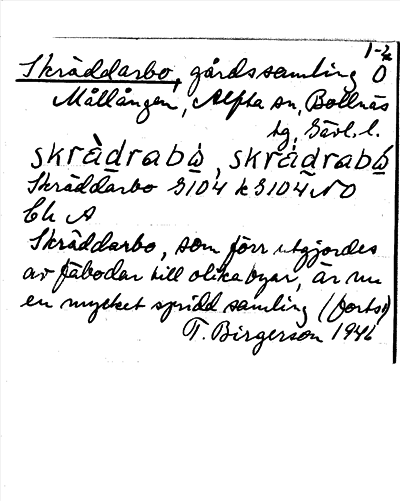 1-2
Skräddarbo, gårdssamling O
Mållången, Alfta sn, Bollnäs
tg, Gävl. l.
skrädrabo, skrädrabo
Skräddarbo G104 k G104 NO
Eh A
Skräddarbo, som förr utgjordes
av fäbodar till olika byar, är nu
en mycket spridd samling (forts)
T. Birgerson 1946